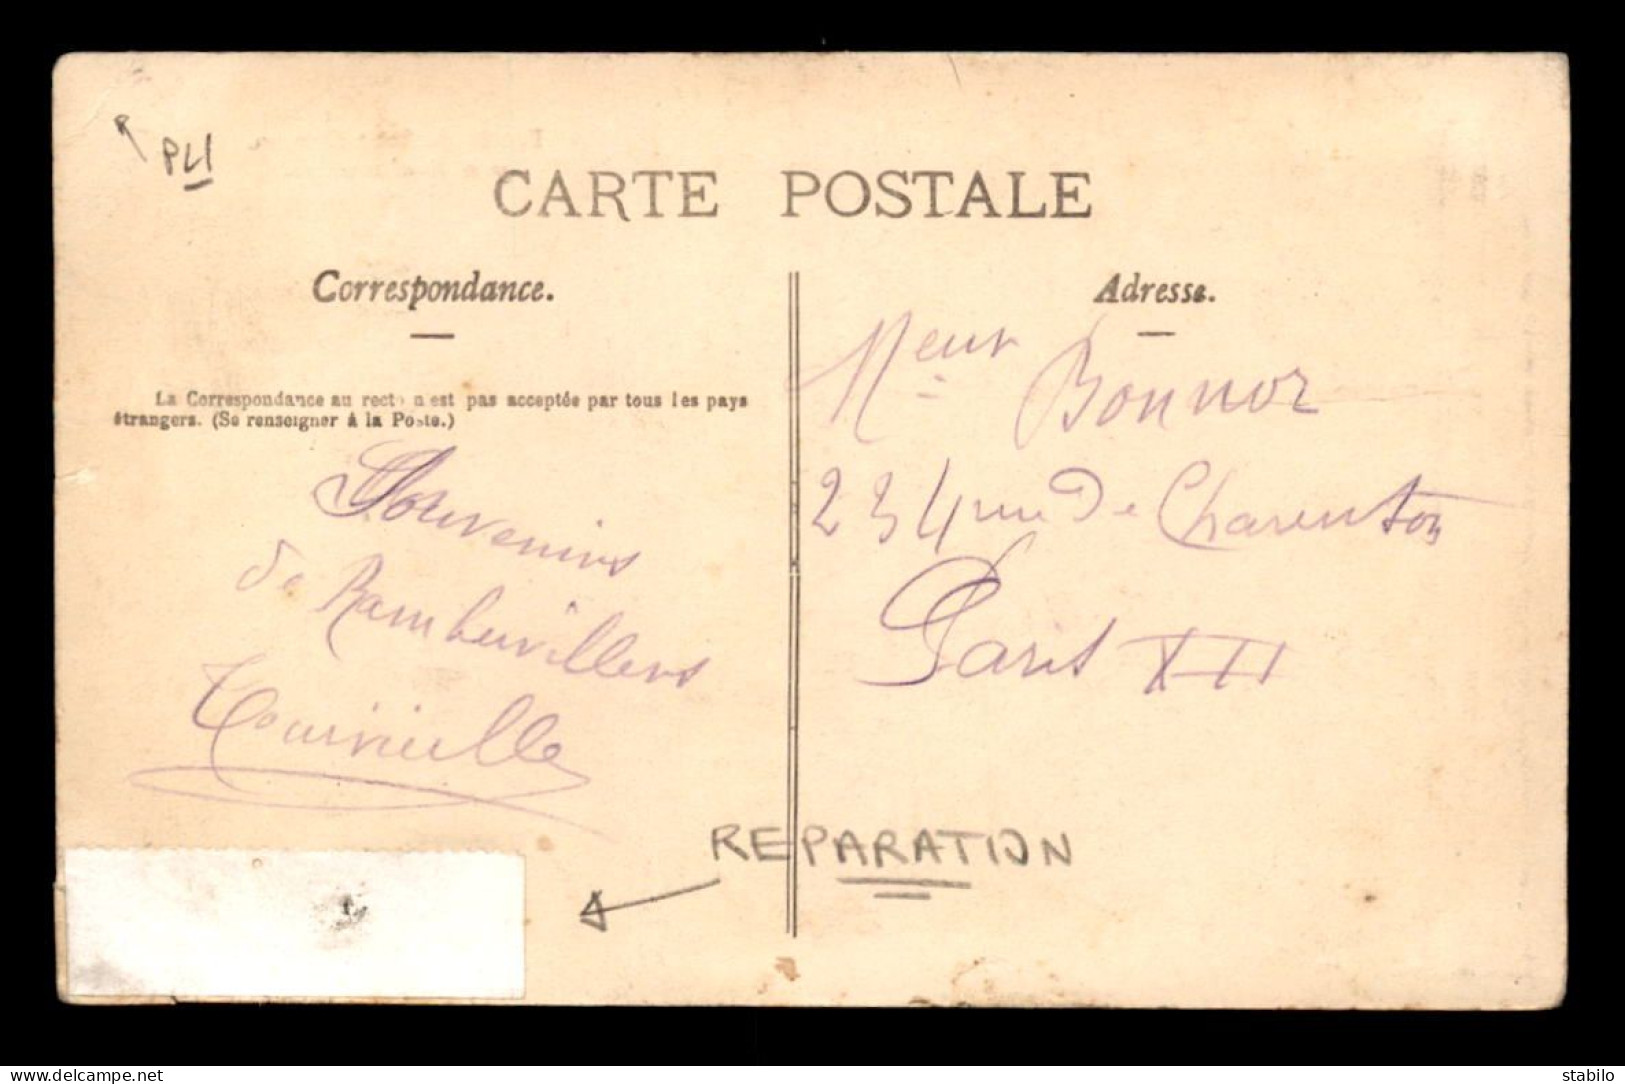 PLI
CARTE POSTALE
Correspondance.
Adresse.
La Correspondance au recto n'est pas acceptée par tous les pays
étrangers. (Se renseigner à la Poste.)
Souvenirs
de Rambervillers
Meur Bonnor
234 rue De Charenton
Paris XII
REPARATION
www.delcampe.net
stabilo